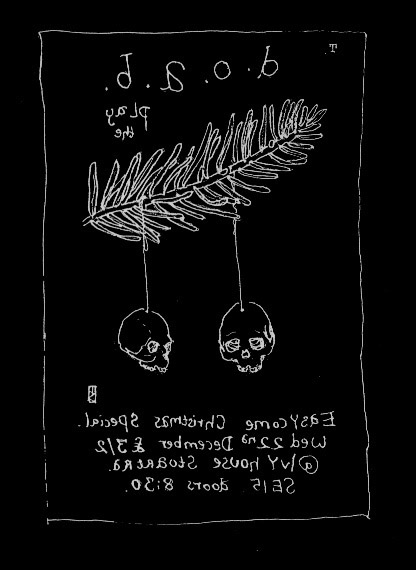 d.o.a.b.
play
the
Easycome Christmas Special.
Wed 22nd December £3/2
@ IVY house Stuart Rd.
SE15 doors 8:30.